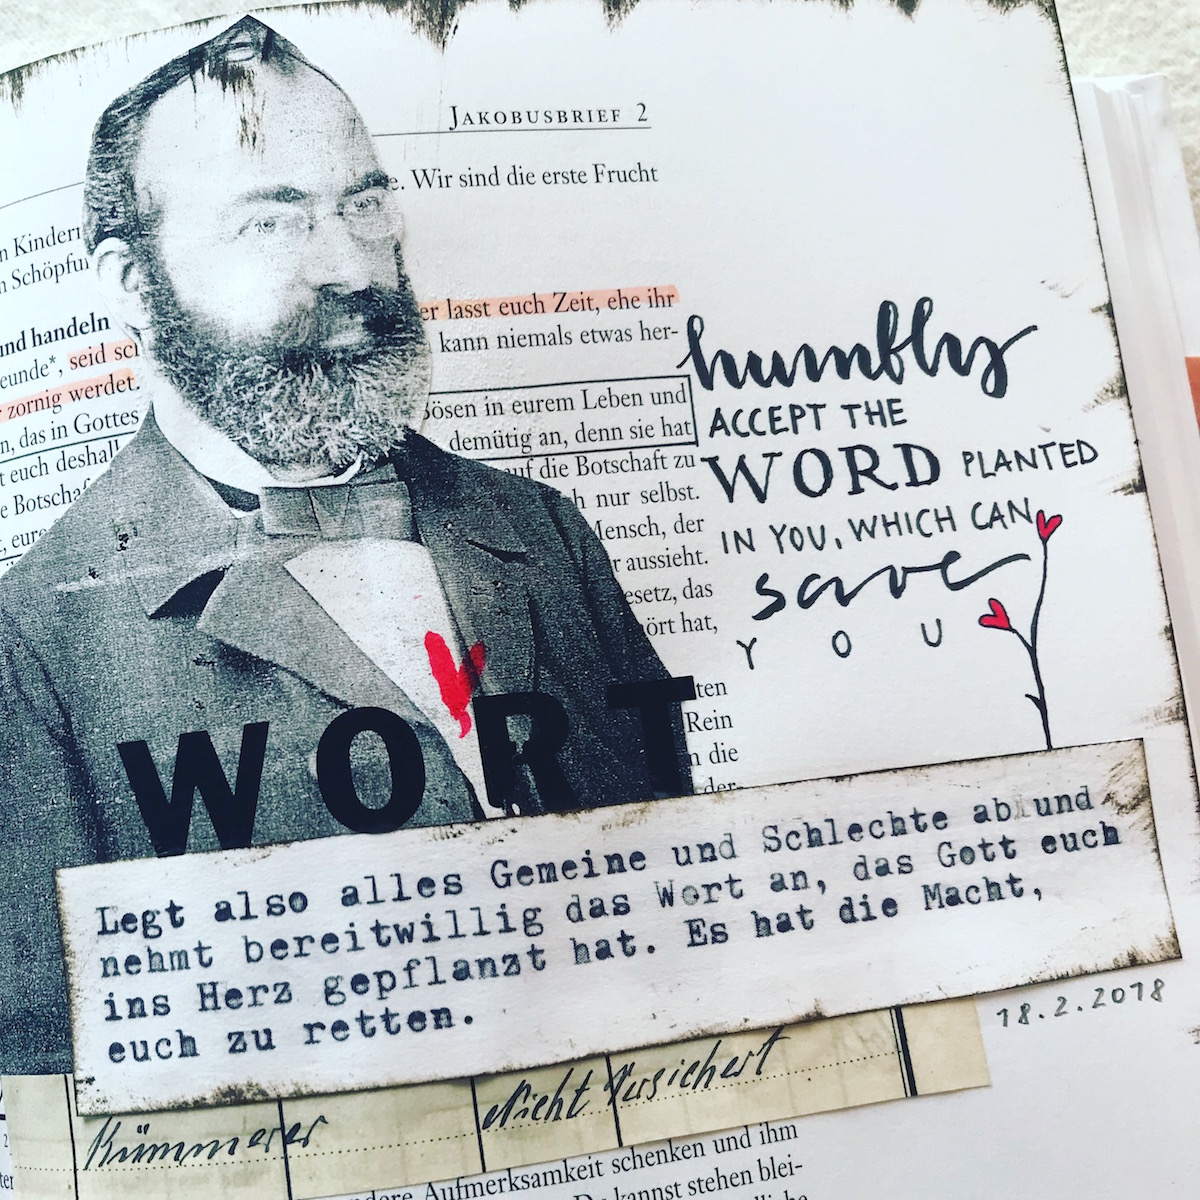 JAKOBUSBRIEF 2
e. Wir sind die erste Frucht
n Kindern
n Schöpfun
und handeln
er lasst euch Zeit, ehe ihr
eunde*, seid sch
kann niemals etwas her-
zornig werdet.
Bösen in eurem Leben und
n, das in Gottes
demütig an, denn sie hat
t euch deshalb
auf die Botschaft zu
e Botschaf
ch nur selbst.
t, eure
Mensch, der
r aussieht.
esetz, das
ört hat,
ten
Rein
n die
der-
humbly
ACCEPT THE
WORD PLANTED
IN YOU, WHICH CAN
save
YOU
WORT
Legt also alles Gemeine und Schlechte ab und
nehmt bereitwillig das Wort an, das Gott euch
ins Herz gepflanzt hat. Es hat die Macht,
euch zu retten.
18.2.2018
Kümmerer Nicht Versichert
dere Aufmerksamkeit schenken und ihm
kannst stehen blei-